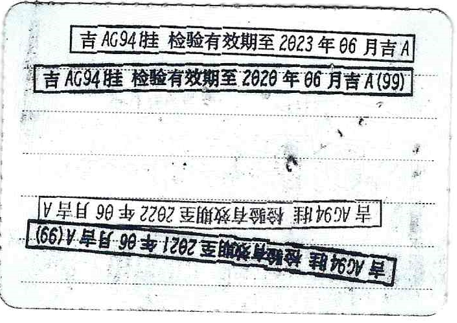 吉 AG941挂 检验有效期至 2023 年 06 月吉 A
吉 AG941挂 检验有效期至 2020 年 06 月吉 A(99)
吉 AG941挂 检验有效期至 2022 年 06 月吉 A
吉 AG941挂 检验有效期至 2021 年 06 月吉 A(99)